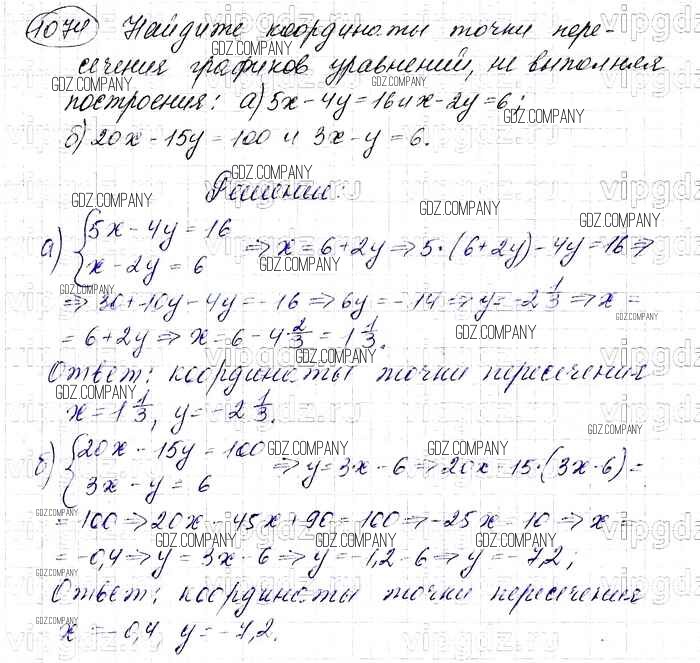 1074 Найдите координаты точки пере-
сечения графиков уравнений, не выполняя
построения: а) 5x-4y=16 и x-2y=6;
б) 20x-15y=100 и 3x-y=6.
Решение:
а) {5x-4y=16
{x-2y=6 => x=6+2y => 5·(6+2y)-4y=16 =>
=> 30+10y-4y=-16 => 6y=-14 => y=-2 1/3 => x=
=6+2y => x=6-4 2/3=1 1/3.
Ответ: координаты точки пересечения
x=1 1/3, y=-2 1/3.
б) {20x-15y=100
{3x-y=6 => y=3x-6 => 20x-15·(3x-6)=
=100 => 20x-45x+90=100 => -25x=10 => x=
=-0,4 => y=3x-6 => y=-1,2-6 => y=-7,2;
Ответ: координаты точки пересечения
x=-0,4, y=-7,2.
GDZ.COMPANY
vipgdz.ru